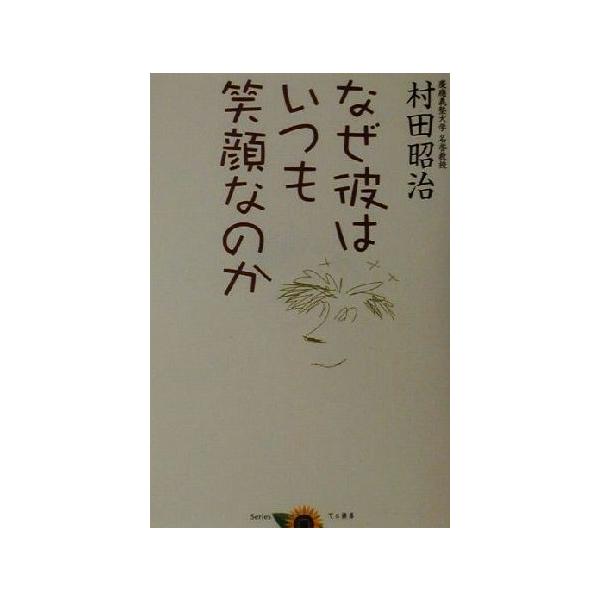 慶應義塾大学 名誉教授
村田昭治
なぜ彼は
いつも
笑顔なのか
Series